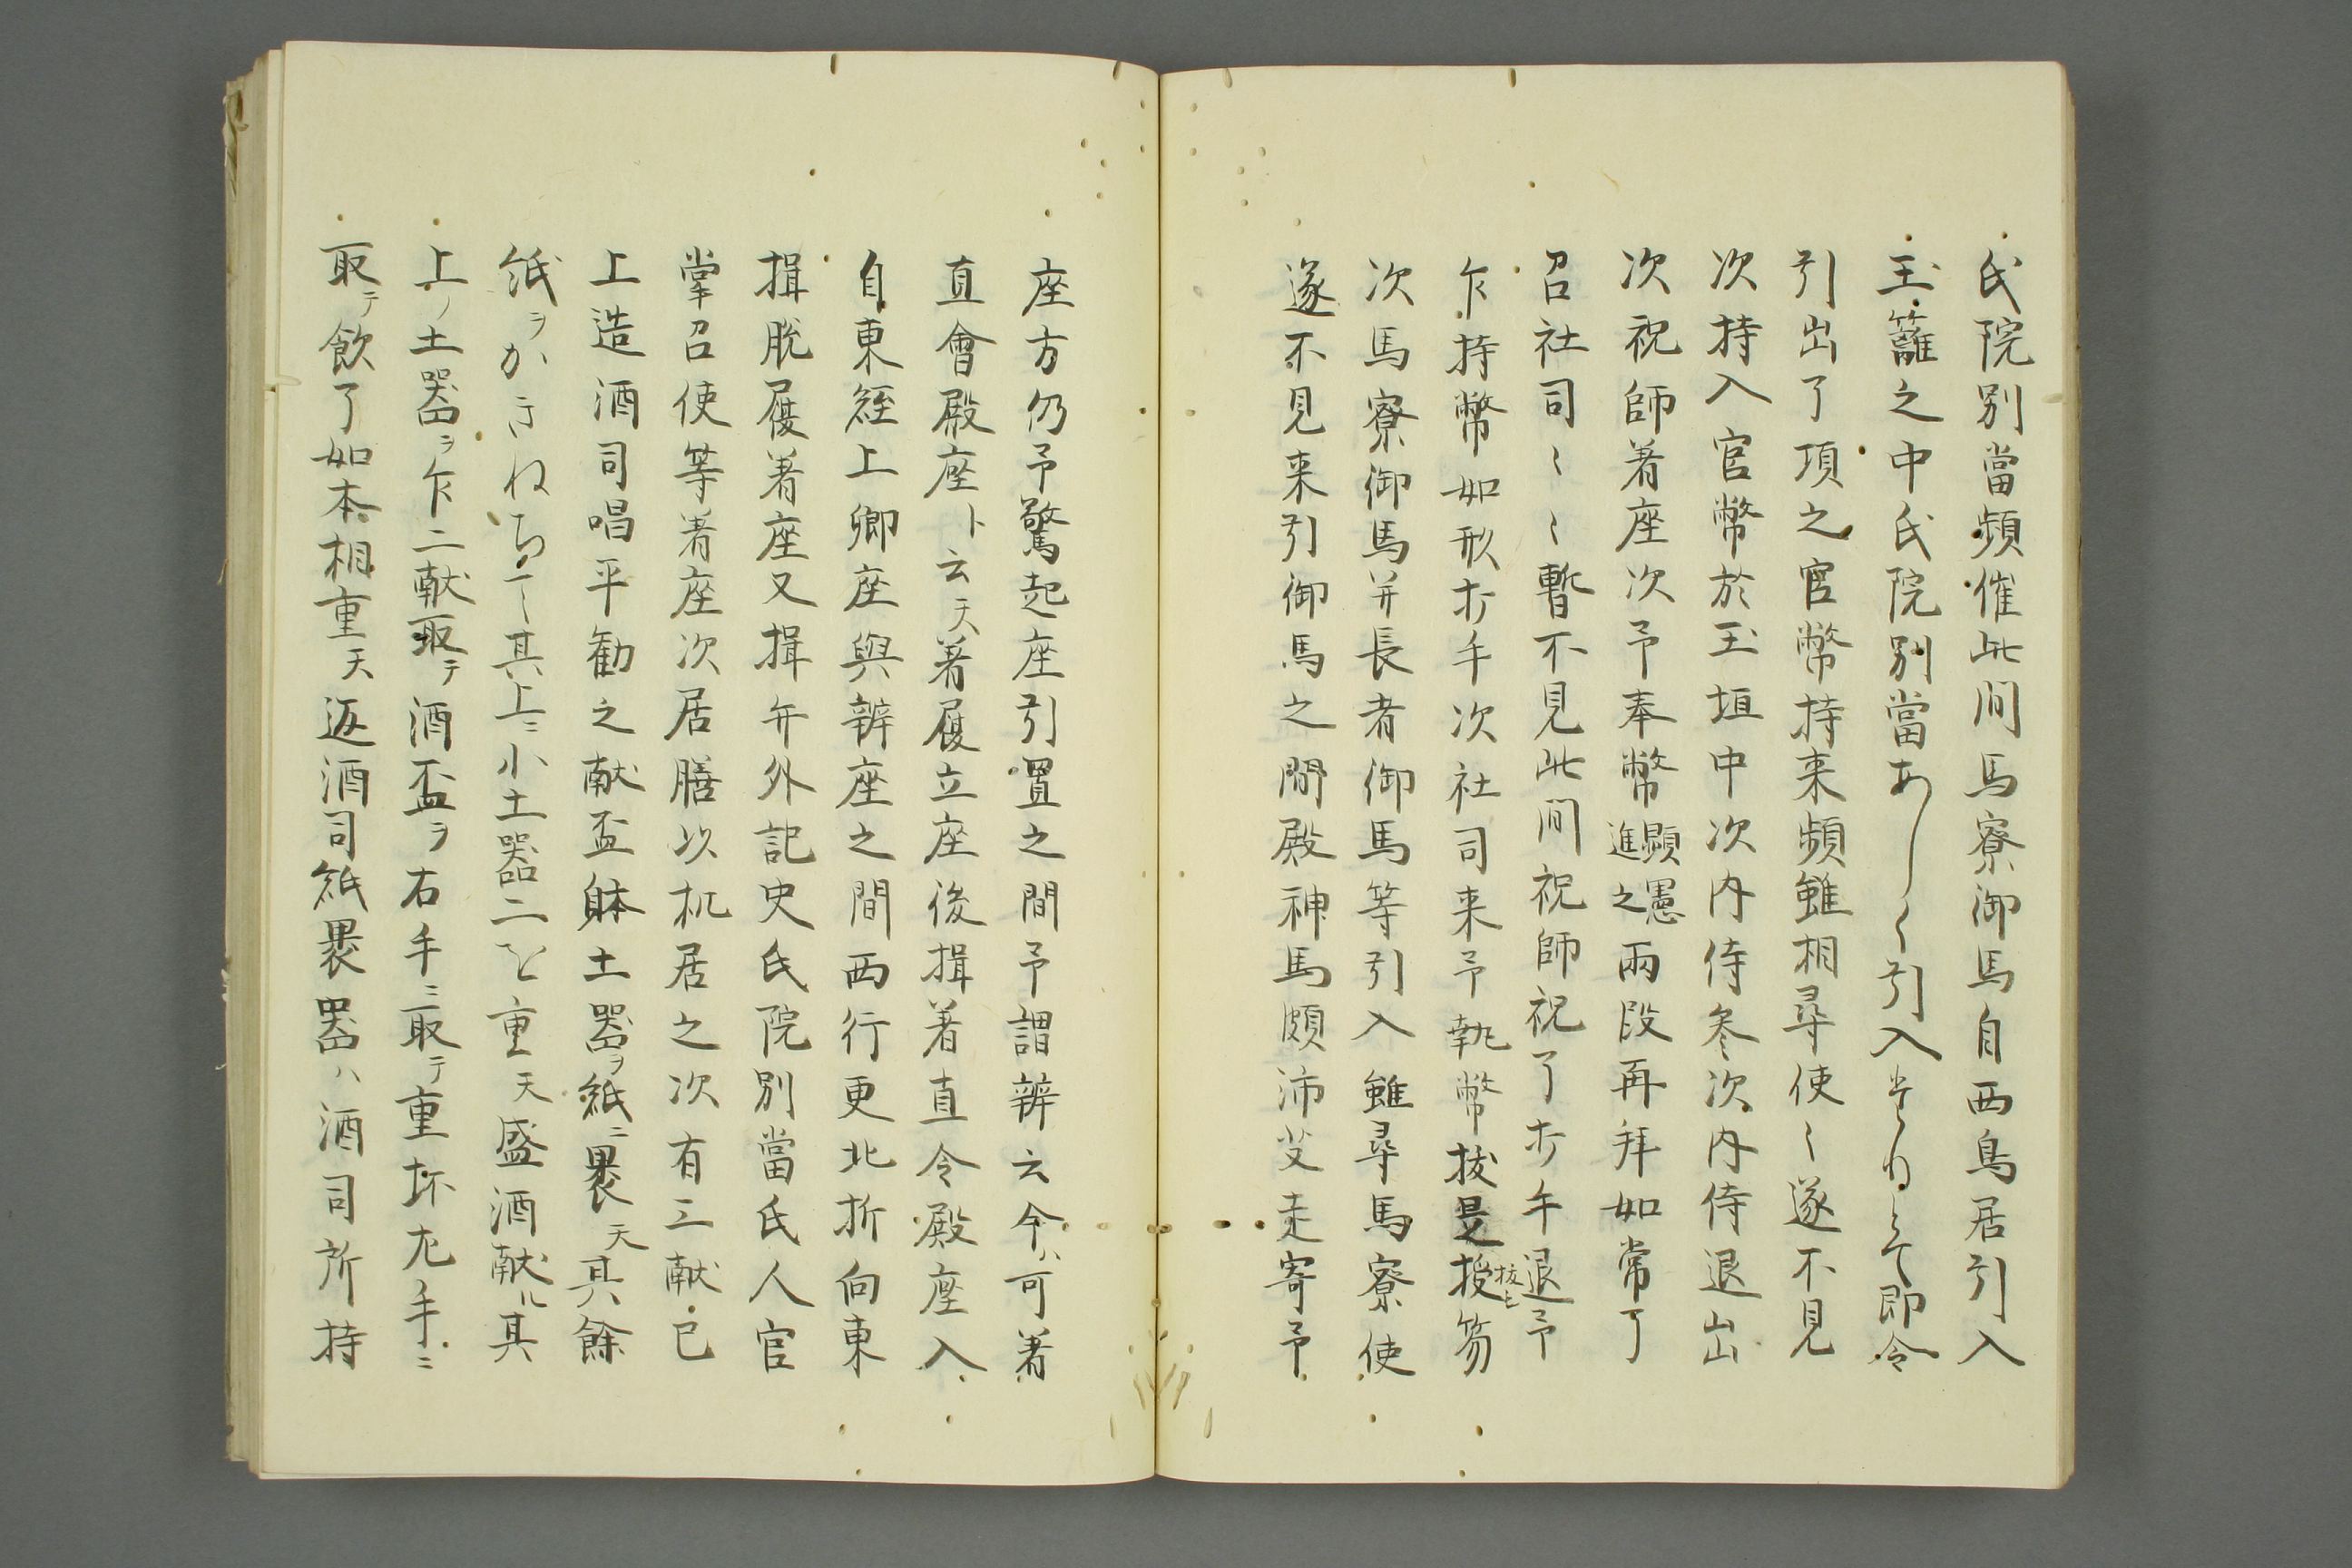 氏院別當頻催此間馬寮御馬自西鳥居引入
玉籬之中氏院別當あし〱引入
即令
引出了項之官幣持来頻雖相尋使〻遂不見
次持入官幣於玉垣中次内侍参次内侍退出
次祝師着座次予奉幣顕憲進之兩段再拜如常了
召社司〻〻暫不見此間祝師祝了拍手退予
乍持幣如形拍手次社司来予執幣抜
授笏
次馬寮御馬并長者御馬等引入雖尋馬寮使
遂不見来引御馬之間殿神馬頗沛艾走寄予
座方仍予驚起座引置之間予謂辨云今ハ可着
直會殿座ト云天着履立座後揖着直令殿座入
自東経上卿座與辨座之間西行更北折向東
揖脱履着座又揖弁外記史氏院別當氏人官
掌召使等着座次居膳以机居之次有三献已
上造酒司唱平勧之献盃躰土器ヲ紙ニ褁天其餘
紙ヲかきねちて其上ニ小土器二を重天盛酒献ル其
上ノ土器ヲ乍二献取テ酒盃ヲ右手ニ取テ重坏左手ニ
取テ飲了如本相重天返酒司紙褁器ハ酒司所持